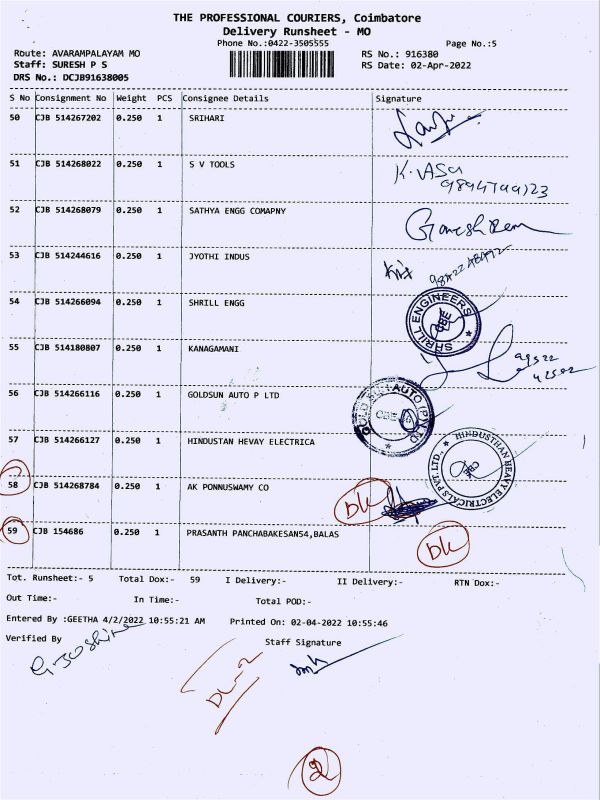 THE PROFESSIONAL COURIERS, Coimbatore
Delivery Runsheet - MO
Phone No.:0422-3505555 Page No.:5
Route: AVARAMPALAYAM MO RS No.: 916380
Staff: SURESH P S RS Date: 02-Apr-2022
DRS No.: DCJB91638005
S No Consignment No Weight PCS Consignee Details Signature
50 CJB 514267202 0.250 1 SRIHARI
51 CJB 514268022 0.250 1 S V TOOLS
52 CJB 514268079 0.250 1 SATHYA ENGG COMAPNY
53 CJB 514244616 0.250 1 JYOTHI INDUS
54 CJB 514266094 0.250 1 SHRILL ENGG
SHRILL ENGINEERS CBE
55 CJB 514180807 0.250 1 KANAGAMANI
56 CJB 514266116 0.250 1 GOLDSUN AUTO P LTD
57 CJB 514266127 0.250 1 HINDUSTAN HEVAY ELECTRICA
HINDUSTHAN HEAVY ELECTRICALS PVT. LTD.
58 CJB 514268784 0.250 1 AK PONNUSWAMY CO
59 CJB 154686 0.250 1 PRASANTH PANCHABAKESAN54,BALAS
Tot. Runsheet:- 5 Total Dox:- 59 I Delivery:- II Delivery:- RTN Dox:-
Out Time:- In Time:- Total POD:-
Entered By :GEETHA 4/2/2022 10:55:21 AM Printed On: 02-04-2022 10:55:46
Verified By Staff Signature
DL-2
2